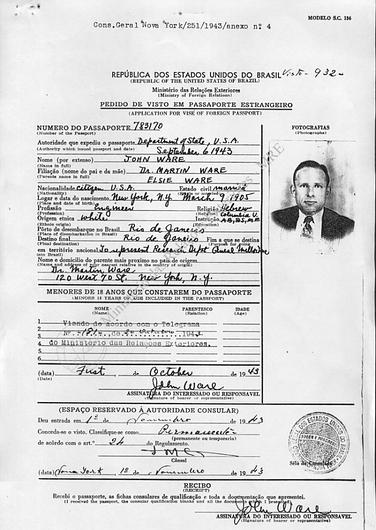 Cons.Geral Nova York/251/1943/anexo nº 4
MODELO S.C. 136
REPÚBLICA DOS ESTADOS UNIDOS DO BRASIL Visto - 932 -
(REPUBLIC OF THE UNITED STATES OF BRAZIL)
Ministério das Relações Exteriores
(Ministry of Foreign Relations)
PEDIDO DE VISTO EM PASSAPORTE ESTRANGEIRO
(APPLICATION FOR VISE OF FOREIGN PASSPORT)
NUMERO DO PASSAPORTE 783170
(Number of the Passport)
FOTOGRAFIAS
(Photographs)
Autoridade que expediu o passaporte Department of State, U.S.A.
(Authority which issued passport and date) September 6 1943
Nome (por extenso) JOHN WARE
(Name in full)
Filiação (nomes do pai e da mãe) Dr. MARTIN WARE
(Parents names in full) ELSIE WARE
Nacionalidade citizen U.S.A. Estado civil married
Lugar e data do nascimento New York, N.Y. March 9, 1905
(Place and date of birth)
Profissão engineer Religião Hebrew
Origem etnica white Columbia U.
(Ethnic origin) AB, BS, ME
Pôrto do desembarque no Brasil Rio de Janeiro
(Place of disembarcation in Brazil)
Destino final Rio de Janeiro Fim a que se destina
(Final destination)
em território nacional To represent Research Dept
Nome e domicílio do parente mais proximo no país de origem.
(Name and address of your nearest relative in the country of origin)
Dr. Martin Ware
120 West 70 St. New York, N.Y.
MENORES DE 18 ANOS QUE CONSTAREM DO PASSAPORTE
(MINOR 18 YEARS OF AGE INCLUDED IN THE PASSPORT)
NOME PARENTESCO IDADE
(Name) (Relation) (Age)
1
2 Visado de acordo com o Telegrama
3
4
5 do Ministerio das Relações Exteriores.
(data) First de October de 1943
(date)
John Ware
ASSINATURA DO INTERESSADO OU RESPONSAVEL
(Signature of bearer or representative)
(ESPAÇO RESERVADO À AUTORIDADE CONSULAR)
Deu entrada em 1º de Novembro de 1943
Concorda-se o visto. Classifique-se como Permanente
(permanente ou temporaria)
de acordo com o art.º 24 do Regulamento.
Cônsul
Sêlo do Consulado
(data) Nova York 1º de Novembro de 1943
RECIBO
(RECEIPT)
Recebi o passaporte, as fichas consulares de qualificação e toda a documentação que apresentei.
(I received the passport, the consular qualification blanks and all the documents which I presented).
John Ware
ASSINATURA DO INTERESSADO OU RESPONSAVEL
(Signature of bearer or representative)